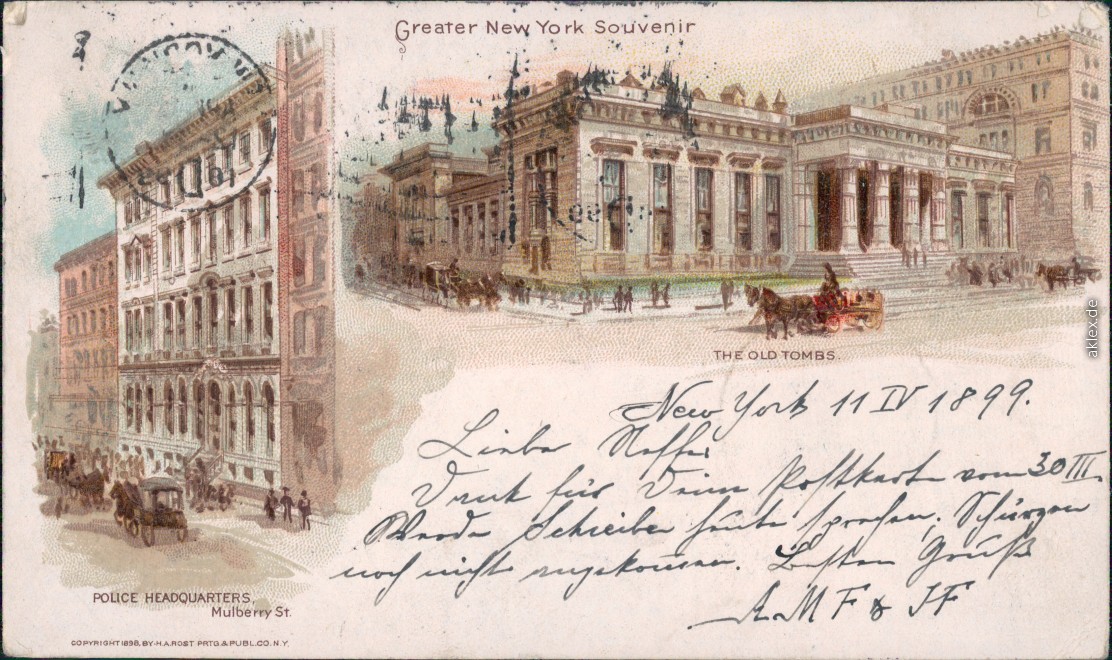 Greater New York Souvenir
THE OLD TOMBS.
New York 11 IV 1899.
Liebe
Dank für Deine Postkarte vom 30 III.
Werde Schreiber heute sprechen, Schürzen
noch nicht angekommen. Besten Gruß
AMF & JF
POLICE HEADQUARTERS,
Mulberry St.
COPYRIGHT 1898, BY H.A. ROST PRTG & PUBL. CO. N.Y.
aklex.de